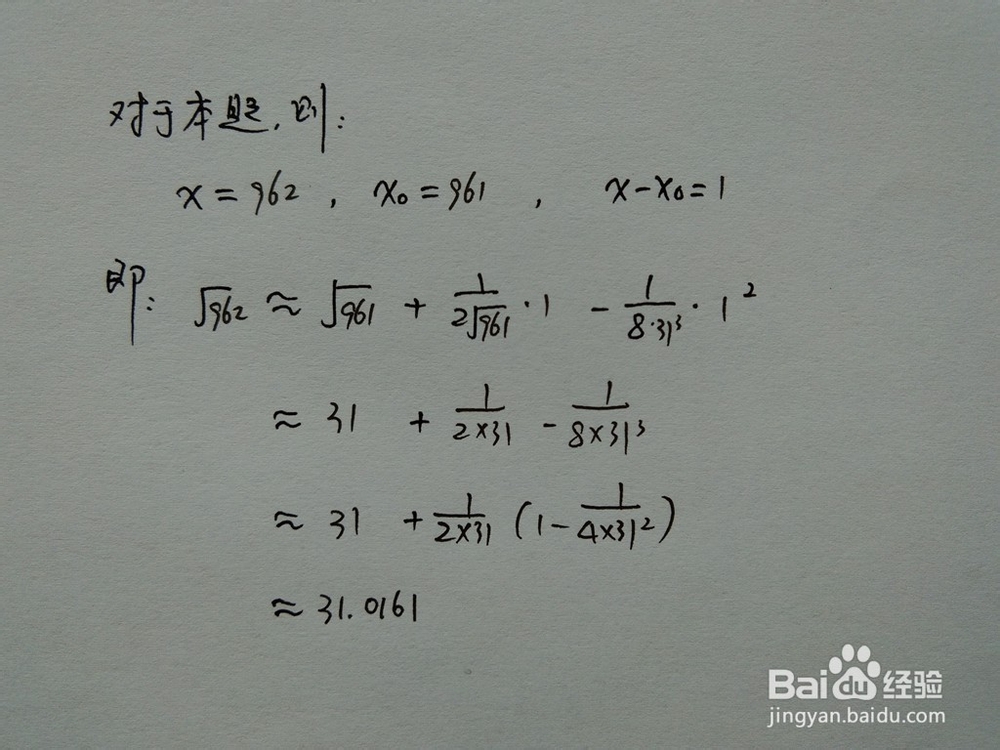 对于本题，则：
x = 962 , x₀ = 961 , x-x₀ = 1
即： √962 ≈ √961 + 1/(2√961) · 1 - 1/(8·31³) · 1²
≈ 31 + 1/(2×31) - 1/(8×31³)
≈ 31 + 1/(2×31) (1 - 1/(4×31²))
≈ 31.0161
Baidu 经验
jingyan.baidu.com